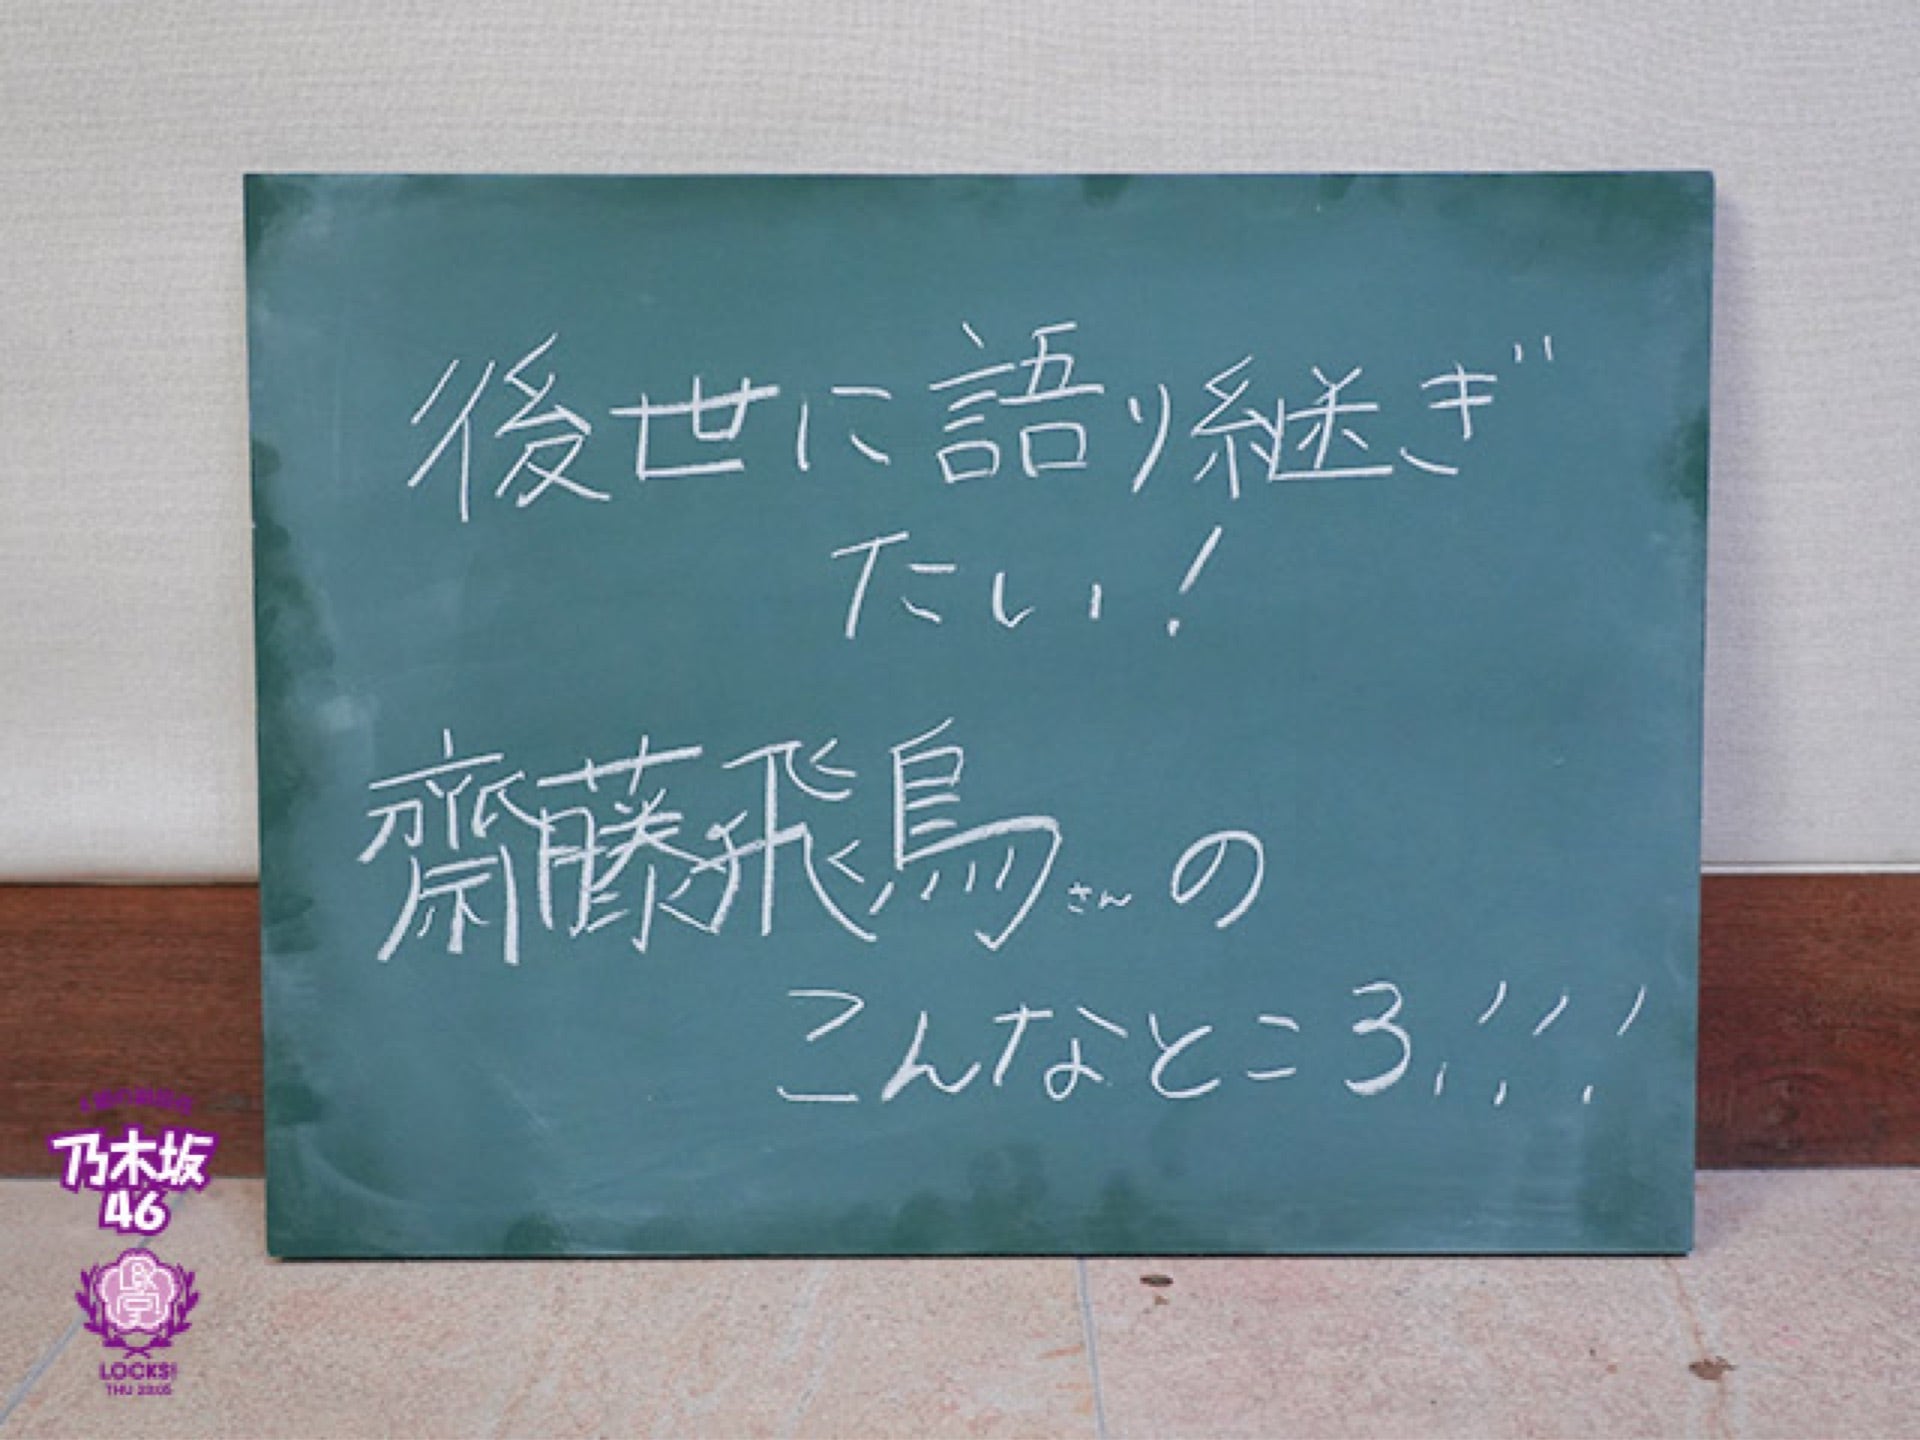 後世に語り継ぎ
たい!
齋藤飛鳥さんの
こんなところ!!!
乃木坂
46
LOCKS!
THU 22:05